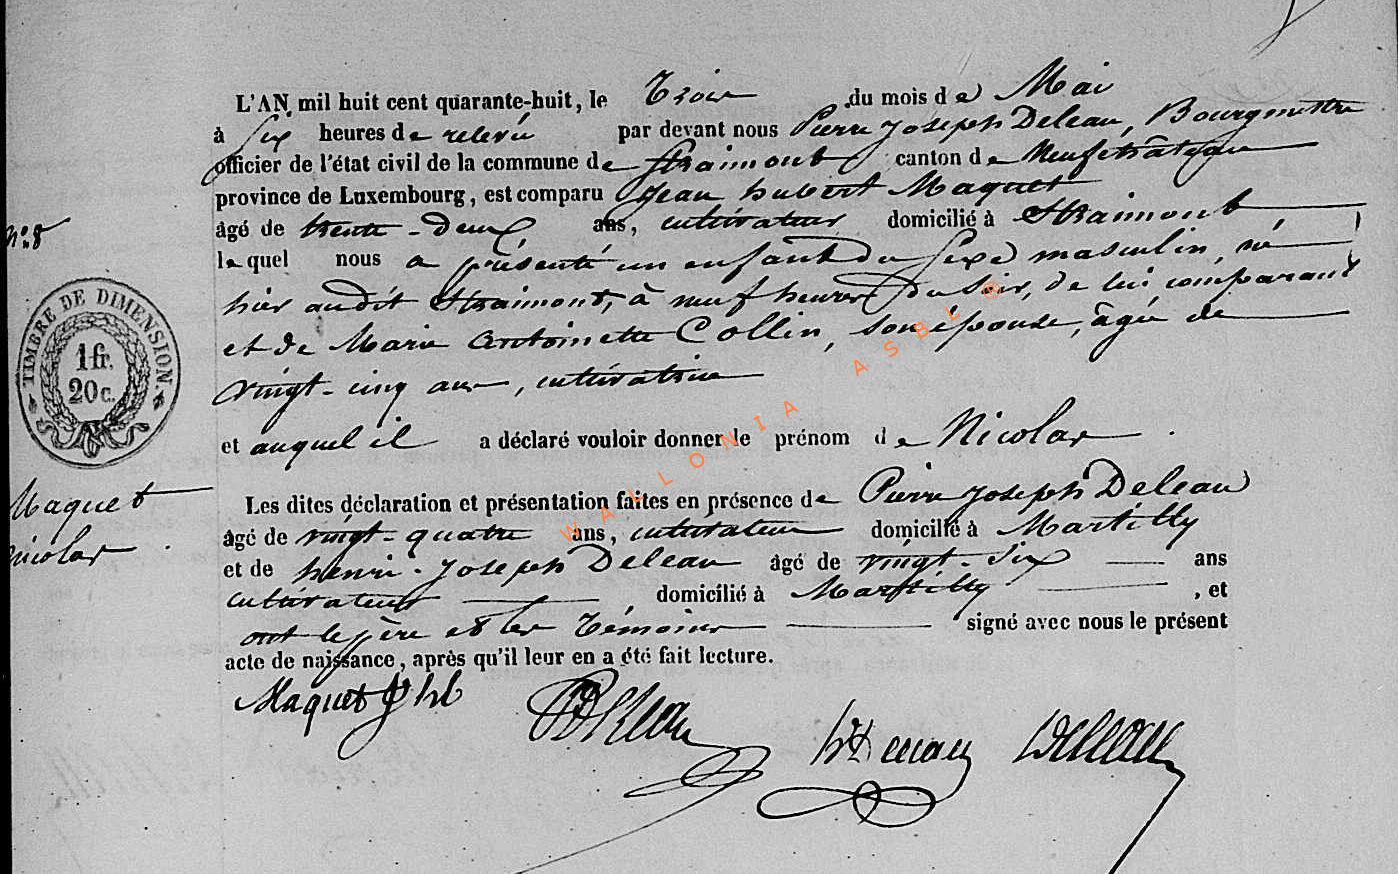 L'AN mil huit cent quarante-huit, le Trois du mois de Mai
à Six heures de relevée par devant nous Pierre Joseph Deleau, Bourgmestre
officier de l'état civil de la commune de Straimont canton de Neufchâteau
province de Luxembourg, est comparu Jean hubert Maquet
âgé de trente-deux ans, cultivateur domicilié à Straimont
N°. 8
lequel nous a présenté un enfant du Sexe masculin, né
hier audit Straimont, à neuf heures du Soir, de lui comparant
et de Marie Antoinette Collin, son épouse, âgée de
vingt-cinq ans, cultivatrice
TIMBRE DE DIMENSION
1 fr.
20 c.
et auquel il a déclaré vouloir donner le prénom de Nicolas.
Maquet
Nicolas.
Les dites déclaration et présentation faites en présence de Pierre Joseph Deleau
âgé de vingt-quatre ans, cultivateur domicilié à Martilly
et de henri-Joseph Deleau âgé de vingt-Six ans
cultivateur domicilié à Martilly, et
ont le père et les Témoins signé avec nous le présent
acte de naissance, après qu'il leur en a été fait lecture.
Maquet J hb
Deleau
Deleau
WALLONIA ASBL ©